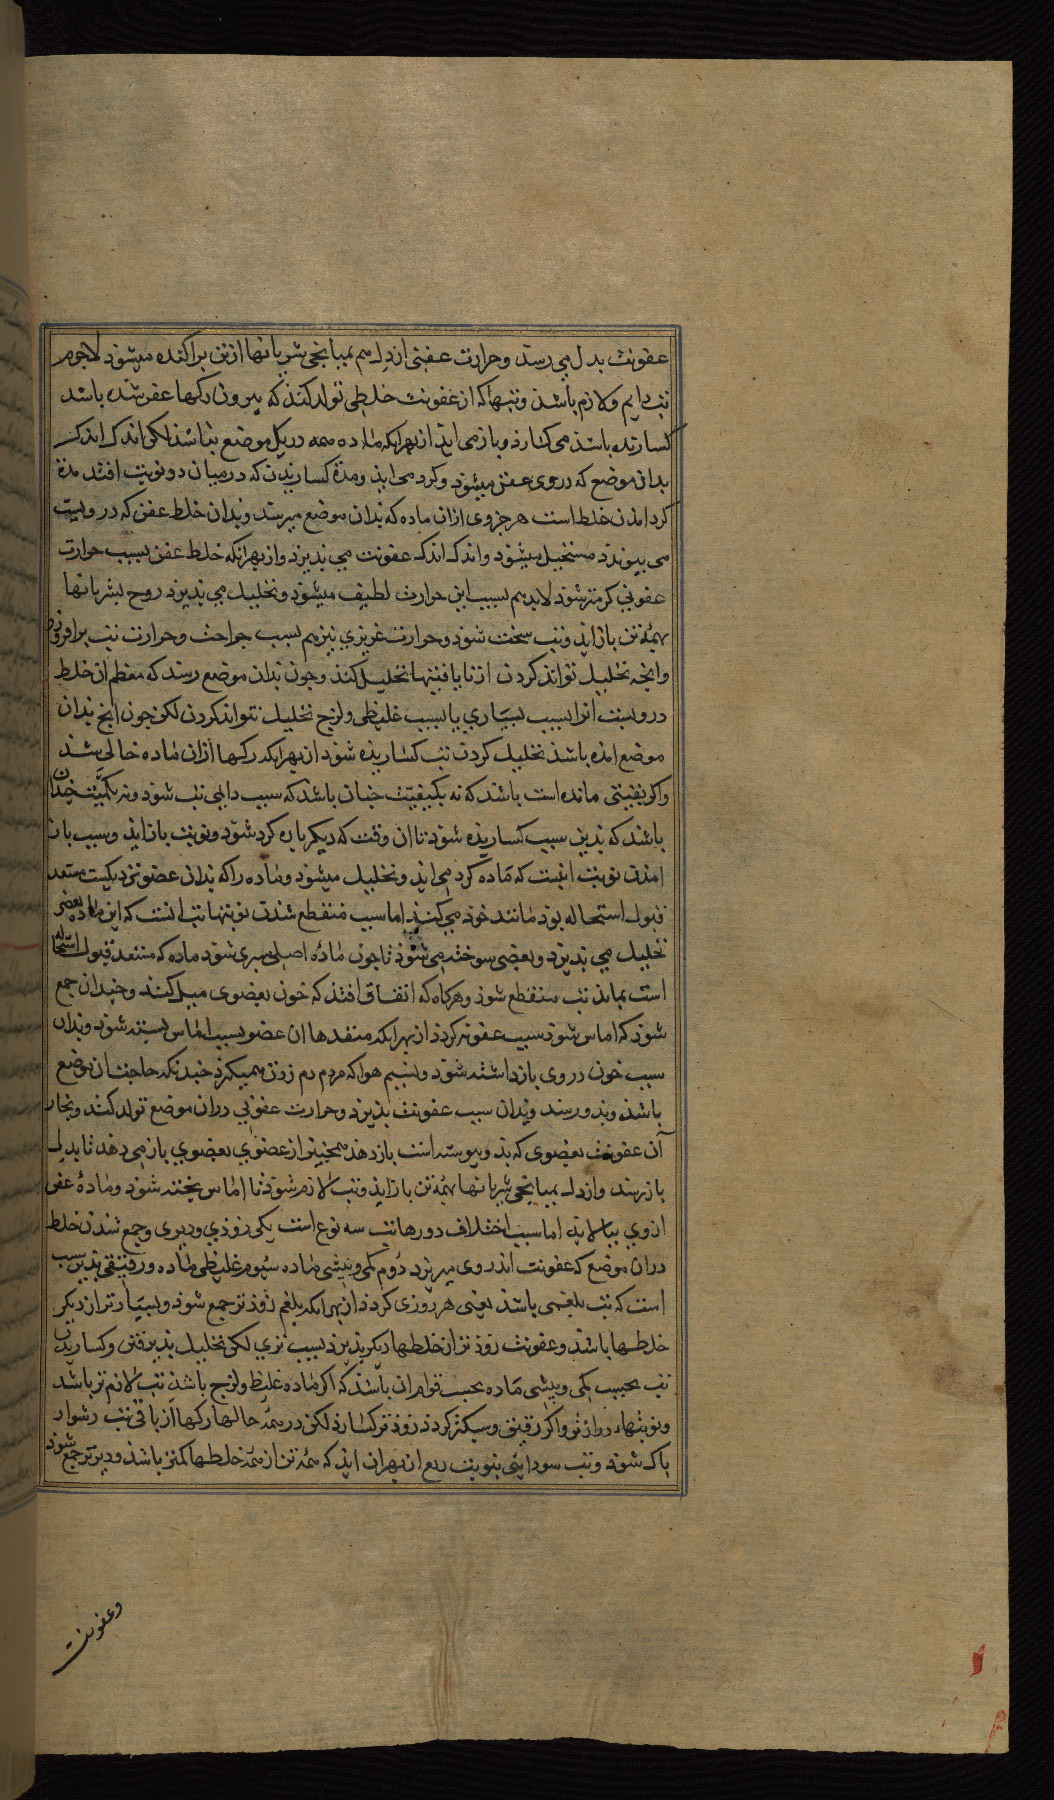 عفونت بدل می رسد و حرارت عفنی از دل هم بمیانجی شریانها از تن پراکنده میشود لاجرم
تب دایم و لازم باشد و تبها که از عفونت خلطی تولد کند که بیرون رکها عفن شده باشد
کسارنده باشد می کسارد و باز می اید از بهر انکه ماده همه در یک موضع نباشد لکن اندک اندک
بدان موضع که در وی عفن میشود و کرد می اید و مدة کساریدن که در میان دو نوبت افتد مدة
کرد امدن خلط است هر جزوی ازان ماده که بدان موضع میرسد و بدان خلط عفن که در ویست
می پیوندد مستحیل میشود و اندک اندک عفونت می پذیرد و از بهر انکه خلط عفن بسبب حرارت
عفونی کرمتر شود لابد هم بسبب این حرارت لطیف میشود و تحلیل می پذیرد روح بشریانها
بهمٔه تن باز اید و تب سخت شود و حرارت غریزی نیز هم بسبب حرارت و حرارت تب برافروزد
وانچه تحلیل تواند کردن از نایافتنها تحلیل کند و چون بدان موضع رسد که معظم از خلط
درویست انرا بسبب بسیاری یا بسبب غلیظی و لزج تحلیل نتواند کردن لکن چون انج بدان
موضع امده باشد تحلیل کردن تب کساریده شود از بهر انکه رکها ازان ماده خالی شد
واکر بقیتی مانده است باشد که نه بکیفیّت چنان باشد که سبب دایمی تب شود و نه بکمیّت چندان
باشد که بدین سبب کساریده شود تا ان وقت که دیکر باره کرد شود و نوبت باز اید و سبب باز
امدن نوبت انست که ماده کرد می اید و تحلیل میشود و ماده را که بدان عضو نزدیکست مستعد
قبول استحاله بود مانند خود می کند اما سبب منقطع شدن نوبتها تب انست که این ماده بعضی
تحلیل می پذیرد و بعضی سوخته می شود تا چون مادٔه اصلی سپری شود ماده که مستعد قبول استحاله
است بماند تب منقطع شود و هرکاه که اتفاق افتد که خون بعضوی میل کند و چندان جمع
شود که اماس شود سبب عفونه کردد از بهر انکه منفدها ان عضو بسبب اماس بسته شود و بدان
سبب خون در وی بازداشته شود و نسیم هوا که مردم دم زدن همیکیرد چندانکه حاجت ان موضع
باشد و بدو رسد و بدان سبب عفونت پذیرد و حرارت عفونی دران موضع تولد کند و بخار
آن عفونت بعضوی که بدو پیوسته است بازدهد همچنین از عضوی بعضوی باز می دهد تا بدل
باز رسد و از دل بمیانجی شریانها بهمٔه تن باز اید و تب لازم شود تا اماس پخته شود و مادٔه عفن
ازوی بپالاید اما سبب اختلاف دورها تب سه نوع است یکی زودی و دیری و جمع شدن خلط
دران موضع که عفونت اندر وی میپزد دُوم کمی و بیشی ماده سیُوم غلیظی ماده و رقیقی بدین سبب
است که تب بلغمی باشد یعنی هر روزی کردد از بهر انکه بلغم زودتر جمع شود و بسیارتر از دیکر
خلطها باشد و عفونت زودتر از خلطها دیکر پذیرد بسبب تری لکن تحلیل پذیرفتن و کساریدن
تب بحسب کمی و بیشی ماده بحسب قوام ان باشد که اکر ماده غلیظ و لزج باشد تب لازم تر باشد
و نوبتها درازتر و اکر رقیق و سبکتر کردد زودتر کسارد لکن در همٔه حالها رکها از باقی تب دشوار
پاک شود و تب سودایی بنوبت ربع از بهران اید که همٔه تن از همٔه خلطها کمتر باشد و دیرتر جمع شود
وعفونت